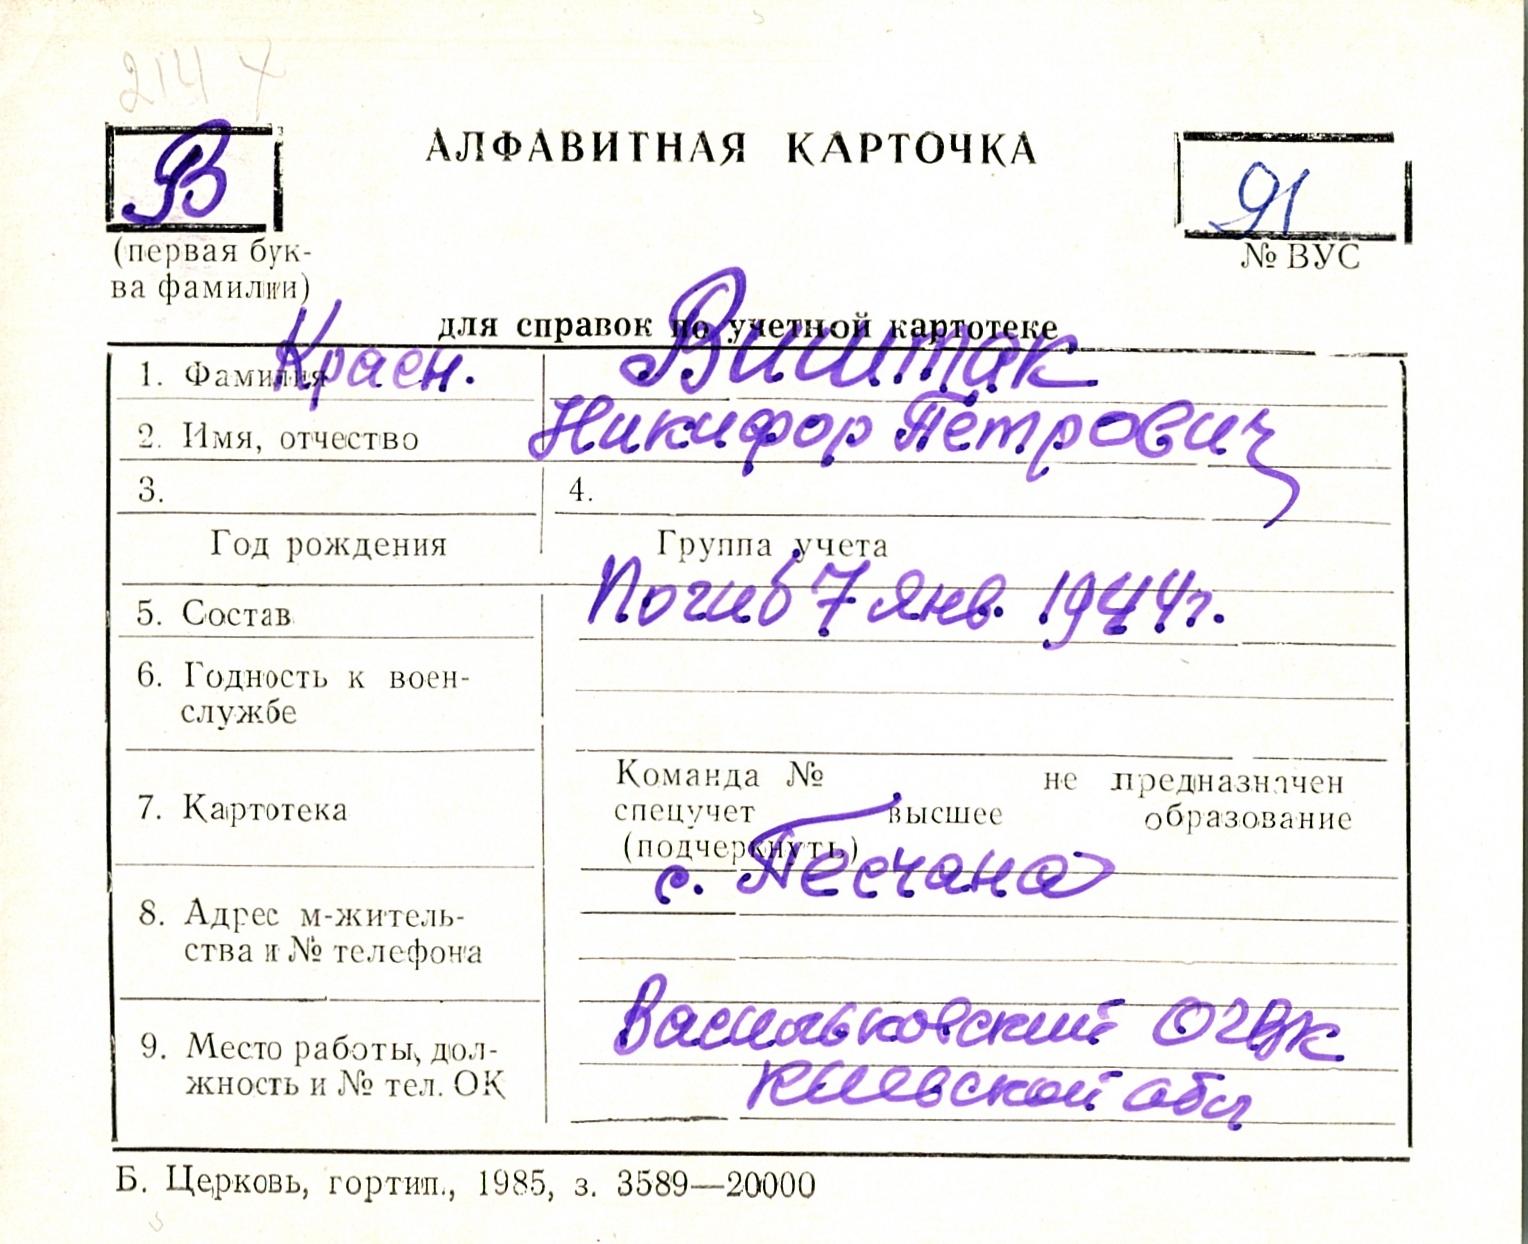 2144
В
АЛФАВИТНАЯ КАРТОЧКА
91
(первая бук-
ва фамилии)
№ ВУС
для справок по учетной картотеке
1. Фамилия Красн. Виштак
2. Имя, отчество Никифор Петрович
3.
4.
Год рождения
Группа учета
5. Состав Погиб 7 янв. 1944г.
6. Годность к воен-
службе
7. Картотека
Команда № не предназначен
спецучет высшее образование
(подчеркнуть)
с. Песчана
8. Адрес м-житель-
ства и № телефона
9. Место работы, дол-
жность и № тел. ОК
Васильковский ОГВК
Киевской обл
Б. Церковь, гортип., 1985, з. 3589—20000